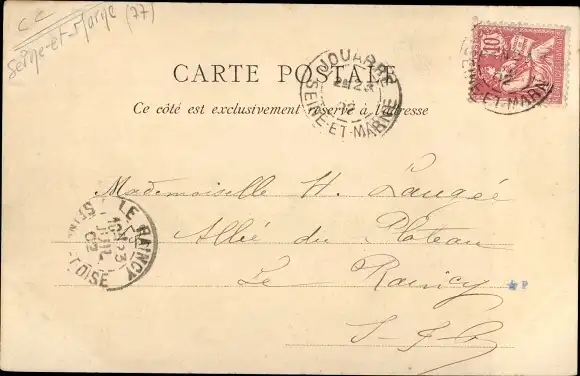 CC
Seine-et-Marne (77)
10
CARTE POSTALE
JOUARRE
23
02
SEINE-ET-MARNE
ET-MARNE
Ce côté est exclusivement réservé à l'adresse
Mademoiselle H. Laugée
Allée du Plateau
Le Raincy
S-&-O
LE RAINCY
23
JUIL
02
OISE